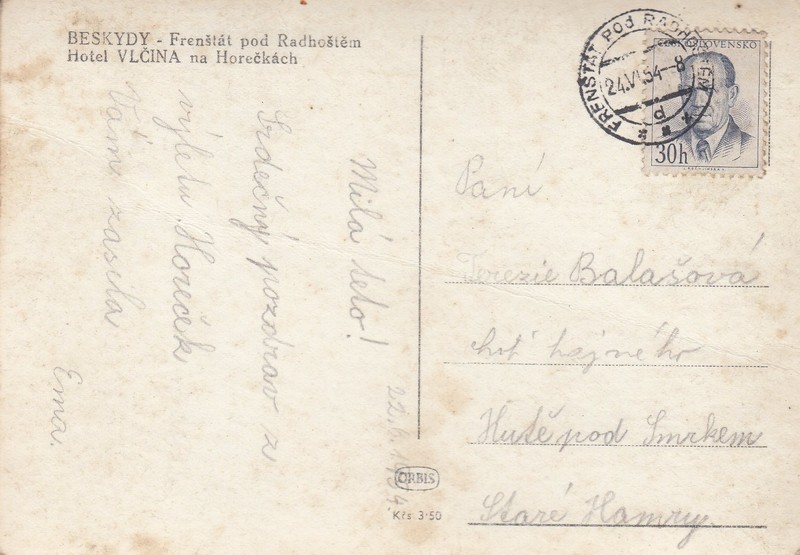 BESKYDY - Frenštát pod Radhoštěm
Hotel VLČINA na Horečkách
Milá teto!
Srdečný pozdrav z
výletu Horeček
Vám zasílá
Ema.
22.6.1954.
ORBIS
Kčs 3·50
FRENŠTÁT POD RADHOŠTĚM
24.VI.54-8
d
ČESKOSLOVENSKO
30h
Paní
Terezie Balašová
choť hajného
Hutě pod Smrkem
Staré Hamry